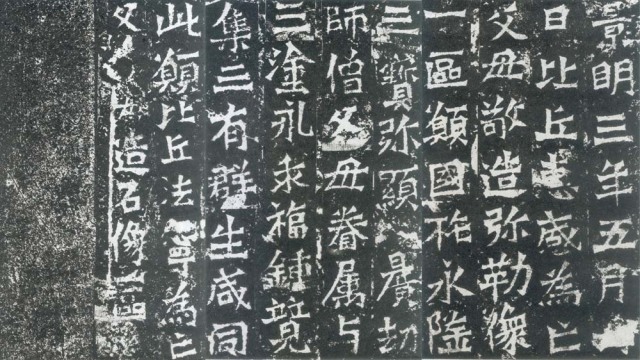 景明三年五月
日比丘惠感為亡
父母敬造弥勒像
一區願國祚永隆
三寶弥顯曠劫
師僧父母眷属与
三塗永乖福鍾竟
集三有群生咸同
此願比丘法寧為亡
父母造石像一區